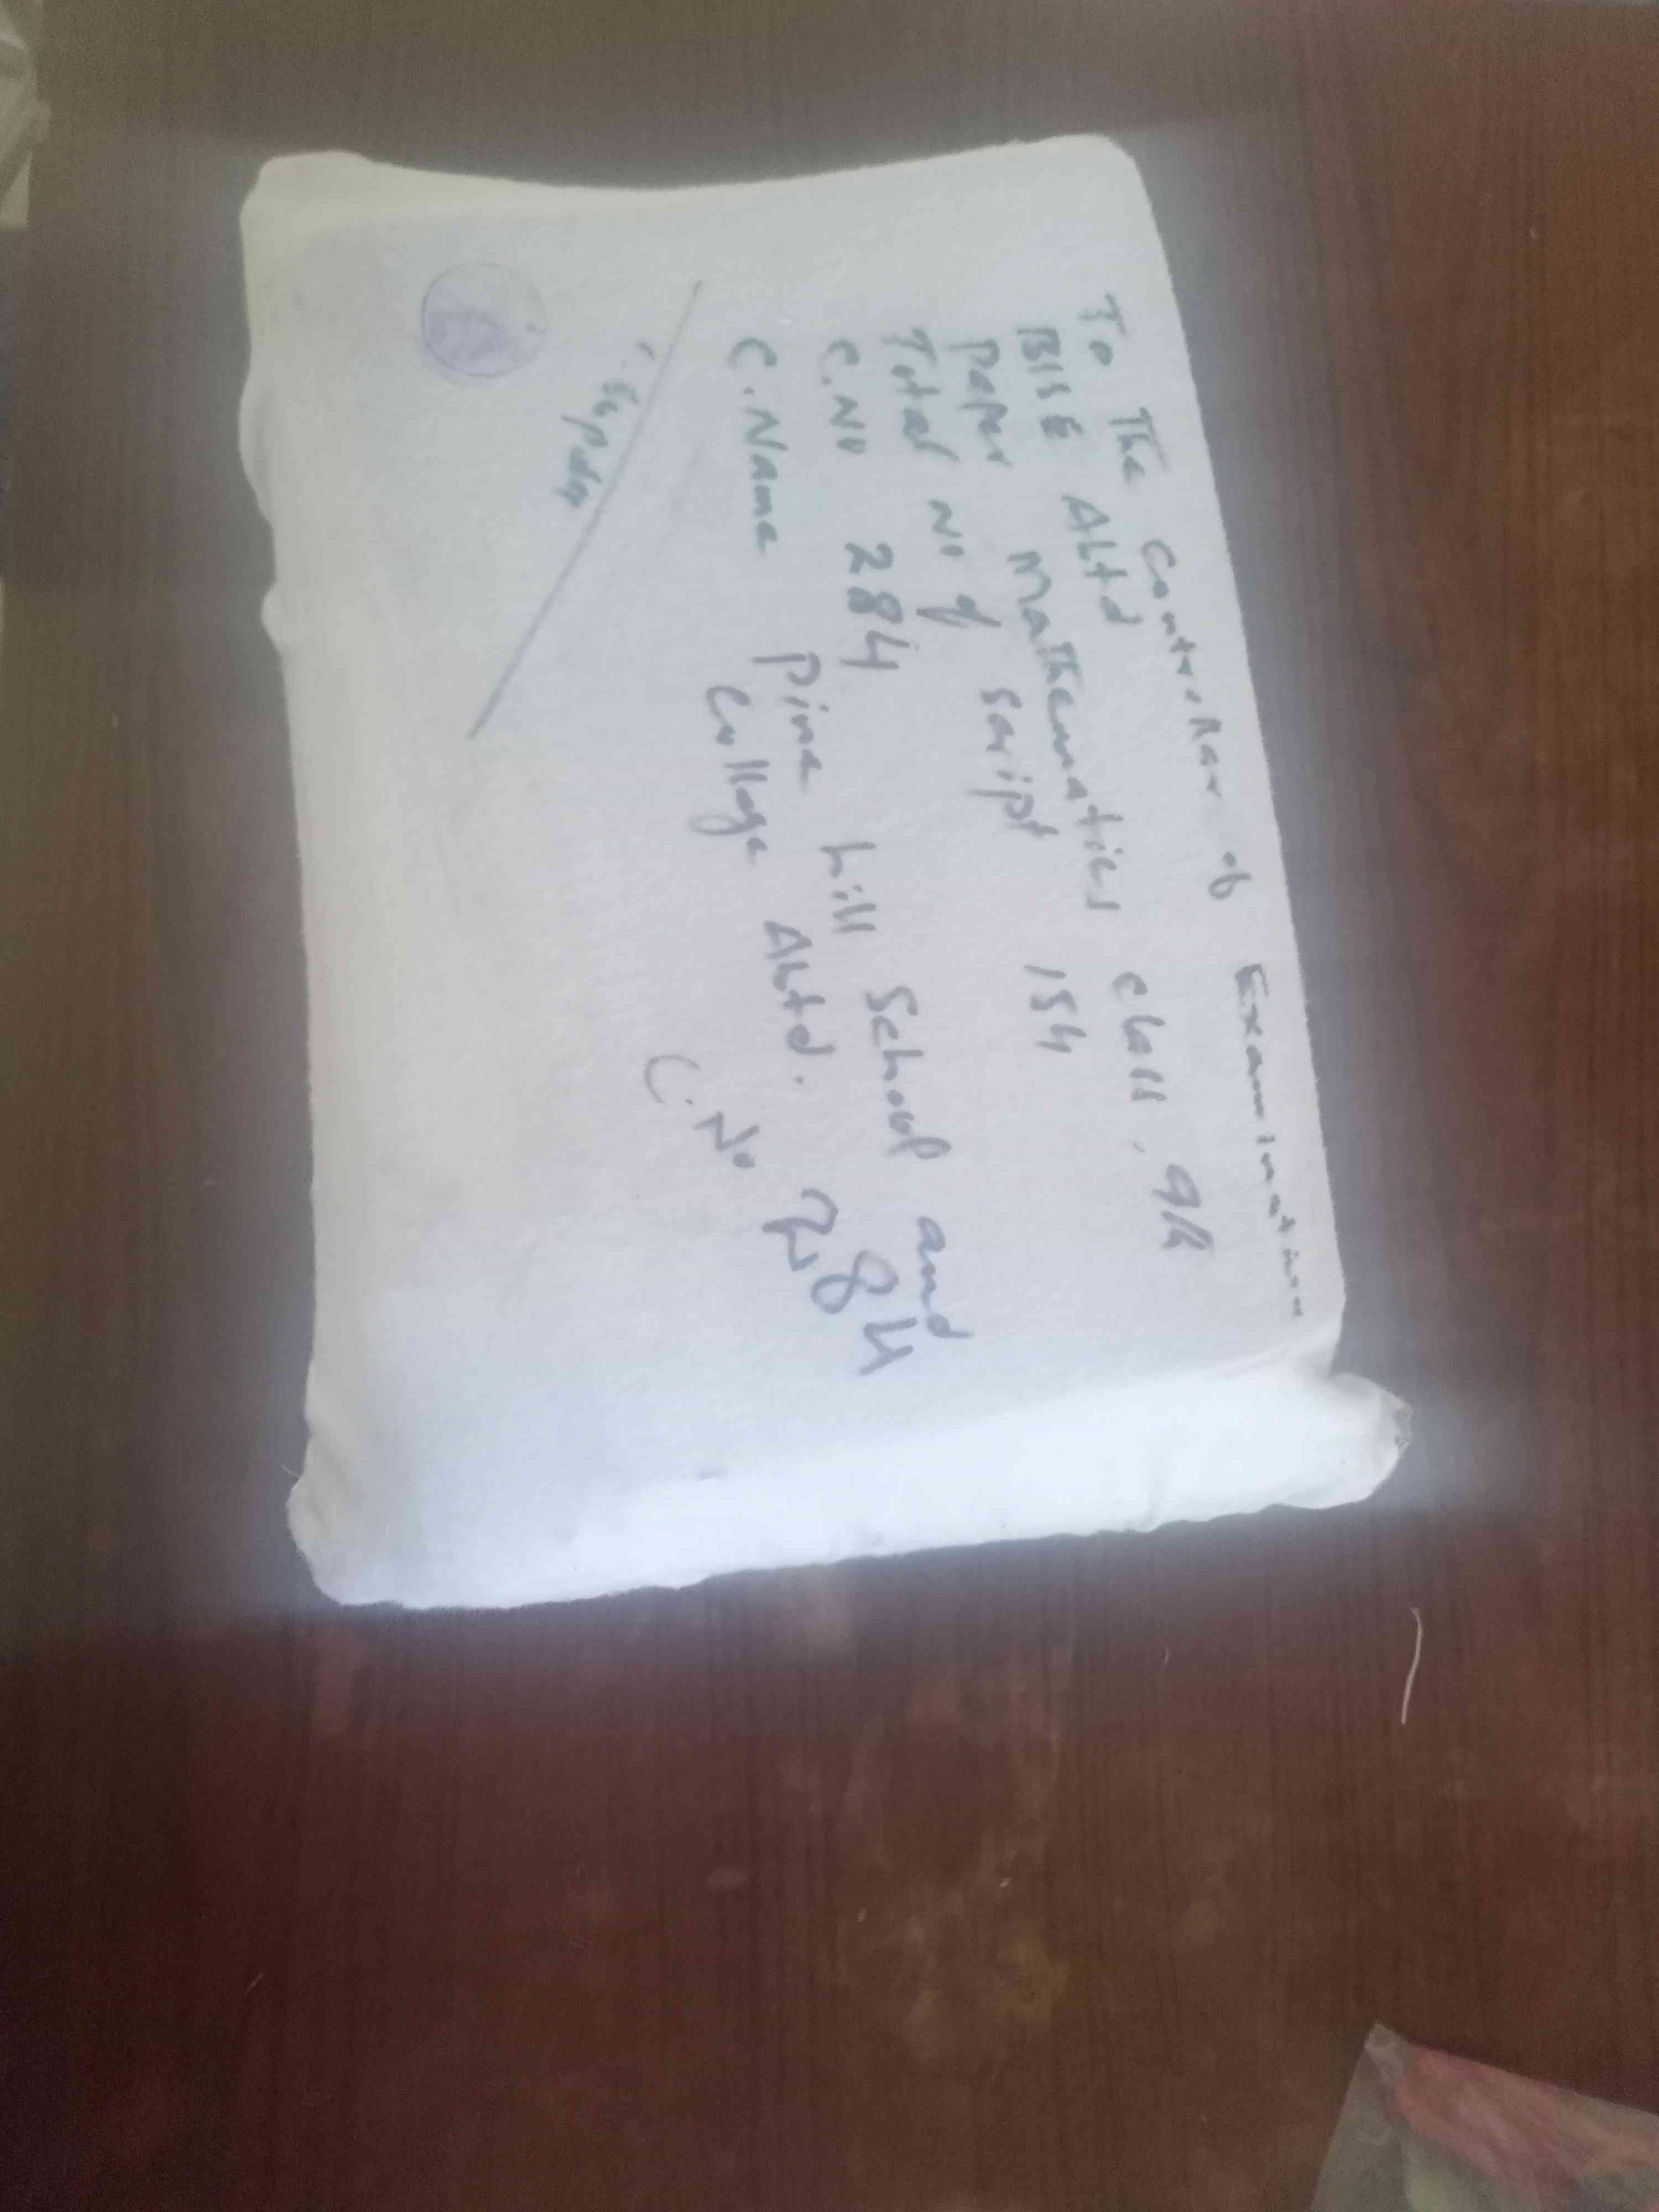 To The Controller of Examination
BISE Abtd
Paper Mathematics class. 9th
Total No of script 154
C.No 284
C.Name Pine hill School and
College Abtd.
C.No 284